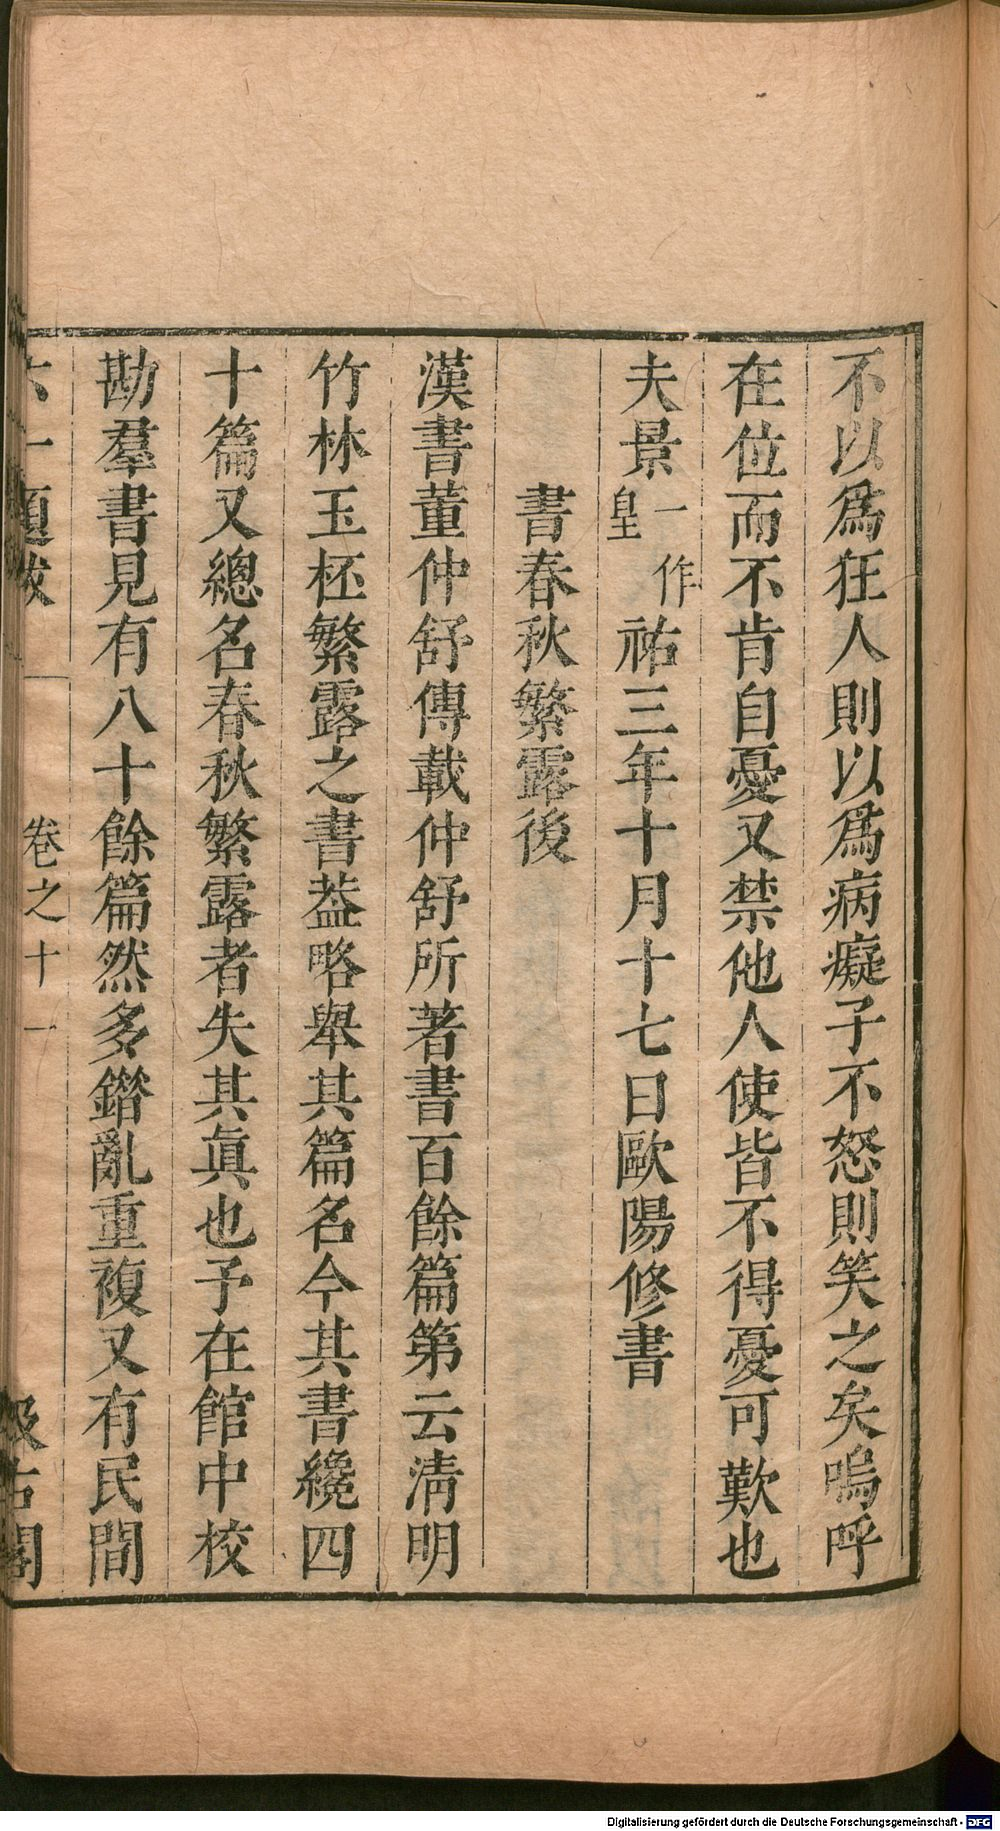 不以爲狂人則以爲病癡子不怒則笑之矣嗚呼
在位而不肯自憂又禁他人使皆不得憂可歎也
夫景一作皇祐三年十月十七日歐陽修書
書春秋繁露後
漢書董仲舒傳載仲舒所著書百餘篇第云淸明
竹林玉杯繁露之書葢略舉其篇名今其書纔四
十篇又總名春秋繁露者失其眞也予在館中校
勘羣書見有八十餘篇然多錯亂重複又有民間
六一題跋 卷之十一 汲古閣
Digitalisierung gefördert durch die Deutsche Forschungsgemeinschaft - DFG